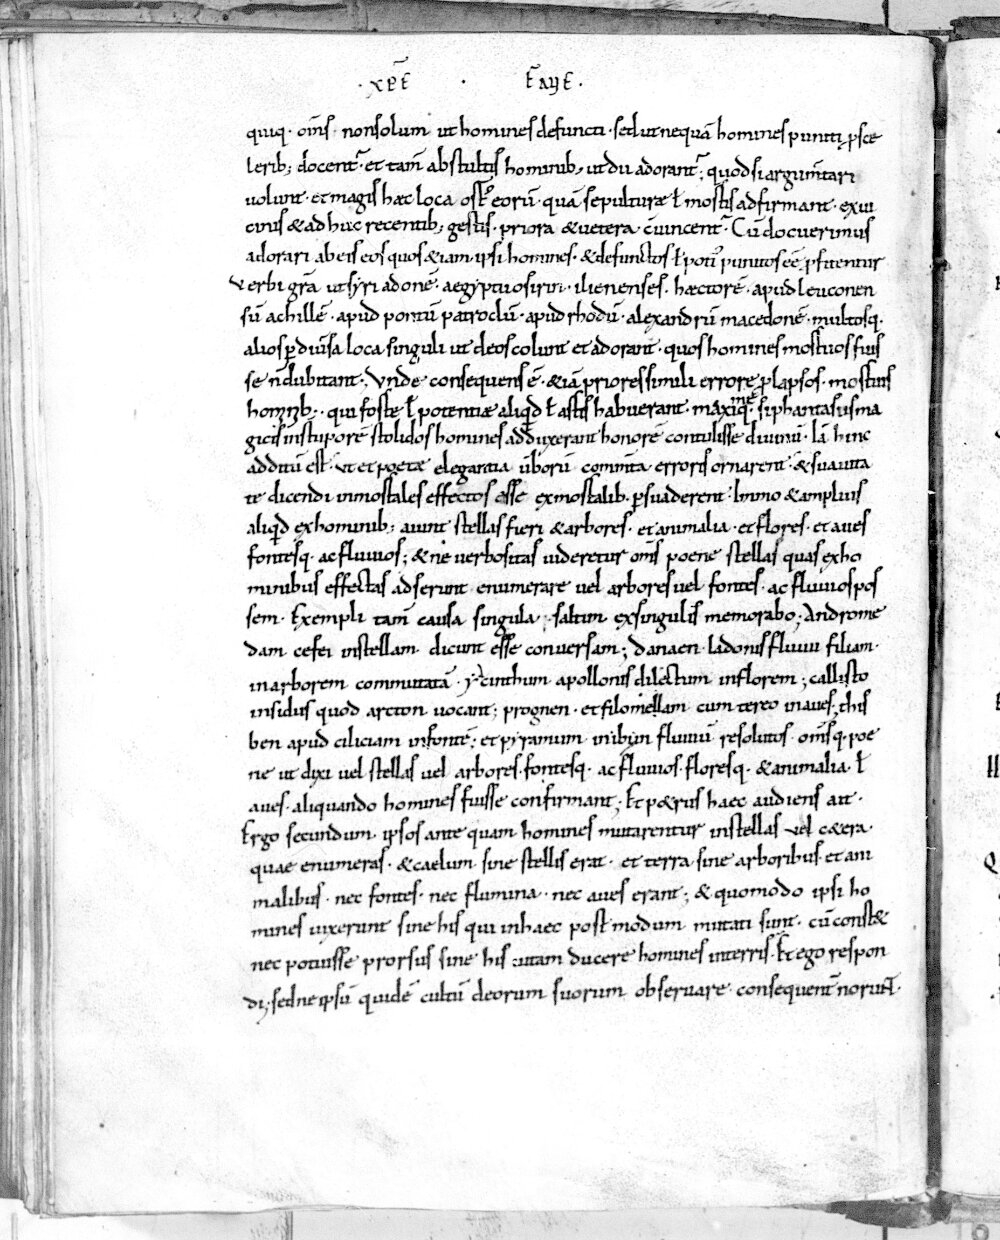 ·xp̄e · ēaye·
quiq· om̄s· nonsolum ut homines defuncti· sed ut nequā homines puniti ꝓ sce
lerib; docent᷒· et tam̄ abstultis hominib; ut dii adorant᷒; quod si argum̄tari
uolunt· et magis hæc loca ost᷒ eorū· quā sepulturæ ł mortis adfirmant· exui
cinis & ad huc recentib; gestis· priora & uetera c̄uincent᷒· Cū docuerimus
adorari ab eis eos quos & iam ipsi homines· & defunctos ł poti᷒ punitos eē ꝓfitentur
Verbi grā ut syri adonē· aegyptii osirin· ilienenses· hæctorē· apud leuconen
sū achillē· apud pontū patroclū· apud rhodū· alexandrū macedonē· multosq·
alios ꝑ diūsa loca singuli ut deos colunt et adorant· quos homines mortuos fuis
se n̄ dubitant·; Vnde consequens ē· & iā priores simili errore ꝓlapsos· mortuis
hominib;· qui forte ł potentiæ aliqd ł artis habuerant· maximeq· si phantasiis ma
gicis in stuporē stolidos homines adduxerant honorē contulisse diuinū· Iā hinc
additū est· ut et poetæ elegantia ūborū comm̄ta erroris ornarent· & suauita
te dicendi inmortales effectos esse ex mortalib· ꝑsuaderent· Immo & amplius
aliqd ex hominib; aiunt stellas fieri & arbores· et animalia· et flores· et aues
fontesq· ac fluuios; & ne uerbositas uideretur om̄s poene stellas quas ex ho
minibus effectas adserunt enumerare uel arbores uel fontes· ac fluuios pos
sem· Exempli tam̄ causa singula· saltim ex singulis memorabo; Androme
dam cefei in stellam dicunt esse conuersam; danaen· ladonis fluuii filiam·
in arborem commutatā· yacinthum apollonis dilectum in florem; callisto
in sidus quod arcton uocant; prognen· et filomellam cum tereo in aues; this
ben apud ciliciam in fontē; et pyramum inibyn fluuiū resolutos· om̄sq· poe
ne ut dixi uel stellas uel arbores· fontesq· ac fluuios· floresq· & animalia· ł
aues· aliquando homines fuisse confirmant; Et p&rus haec audiens ait·
Ergo secundum ipsos ante quam homines mutarentur in stellas vel c&era·
quae enumeras· & caelum sine stellis erat· et terra sine arboribus· et ani
malibus· nec fontes· nec flumina· nec aues erant; & quomodo ipsi ho
mines uixerunt sine his qui in haec post modum mutati sunt· cū const&
nec potuisse prorsus sine his uitam ducere homines in terris· Et ego respon
di; sed ne ipsū quidē cultū deorum suorum obseruare· consequent᷒ noruNT·